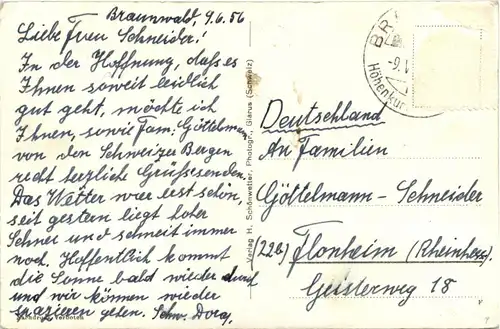 Braunwald, 9.6.56
Liebe Frau Schneider!
In der Hoffnung, dass es
Ihnen soweit leidlich
gut geht, möchte ich
Ihnen, sowie Fam. Göttelmann
von den Schweizer Bergen
recht herzliche Grüsse senden.
Das Wetter war erst schön,
seit gestern liegt hoher
Schnee und schneit immer
noch. Hoffentlich kommt
die Sonne bald wieder durch
und wir können wieder
spazieren gehen. Schw. Dora,
Nachdruck verboten
Verlag H. Schönwetter, Photogr., Glarus (Schweiz)
BR
-9.V
Höhenkur
Deutschland
An Familien
Göttelmann-Schneider
(22b) Flonheim (Rheinhess.)
Geisterweg 18